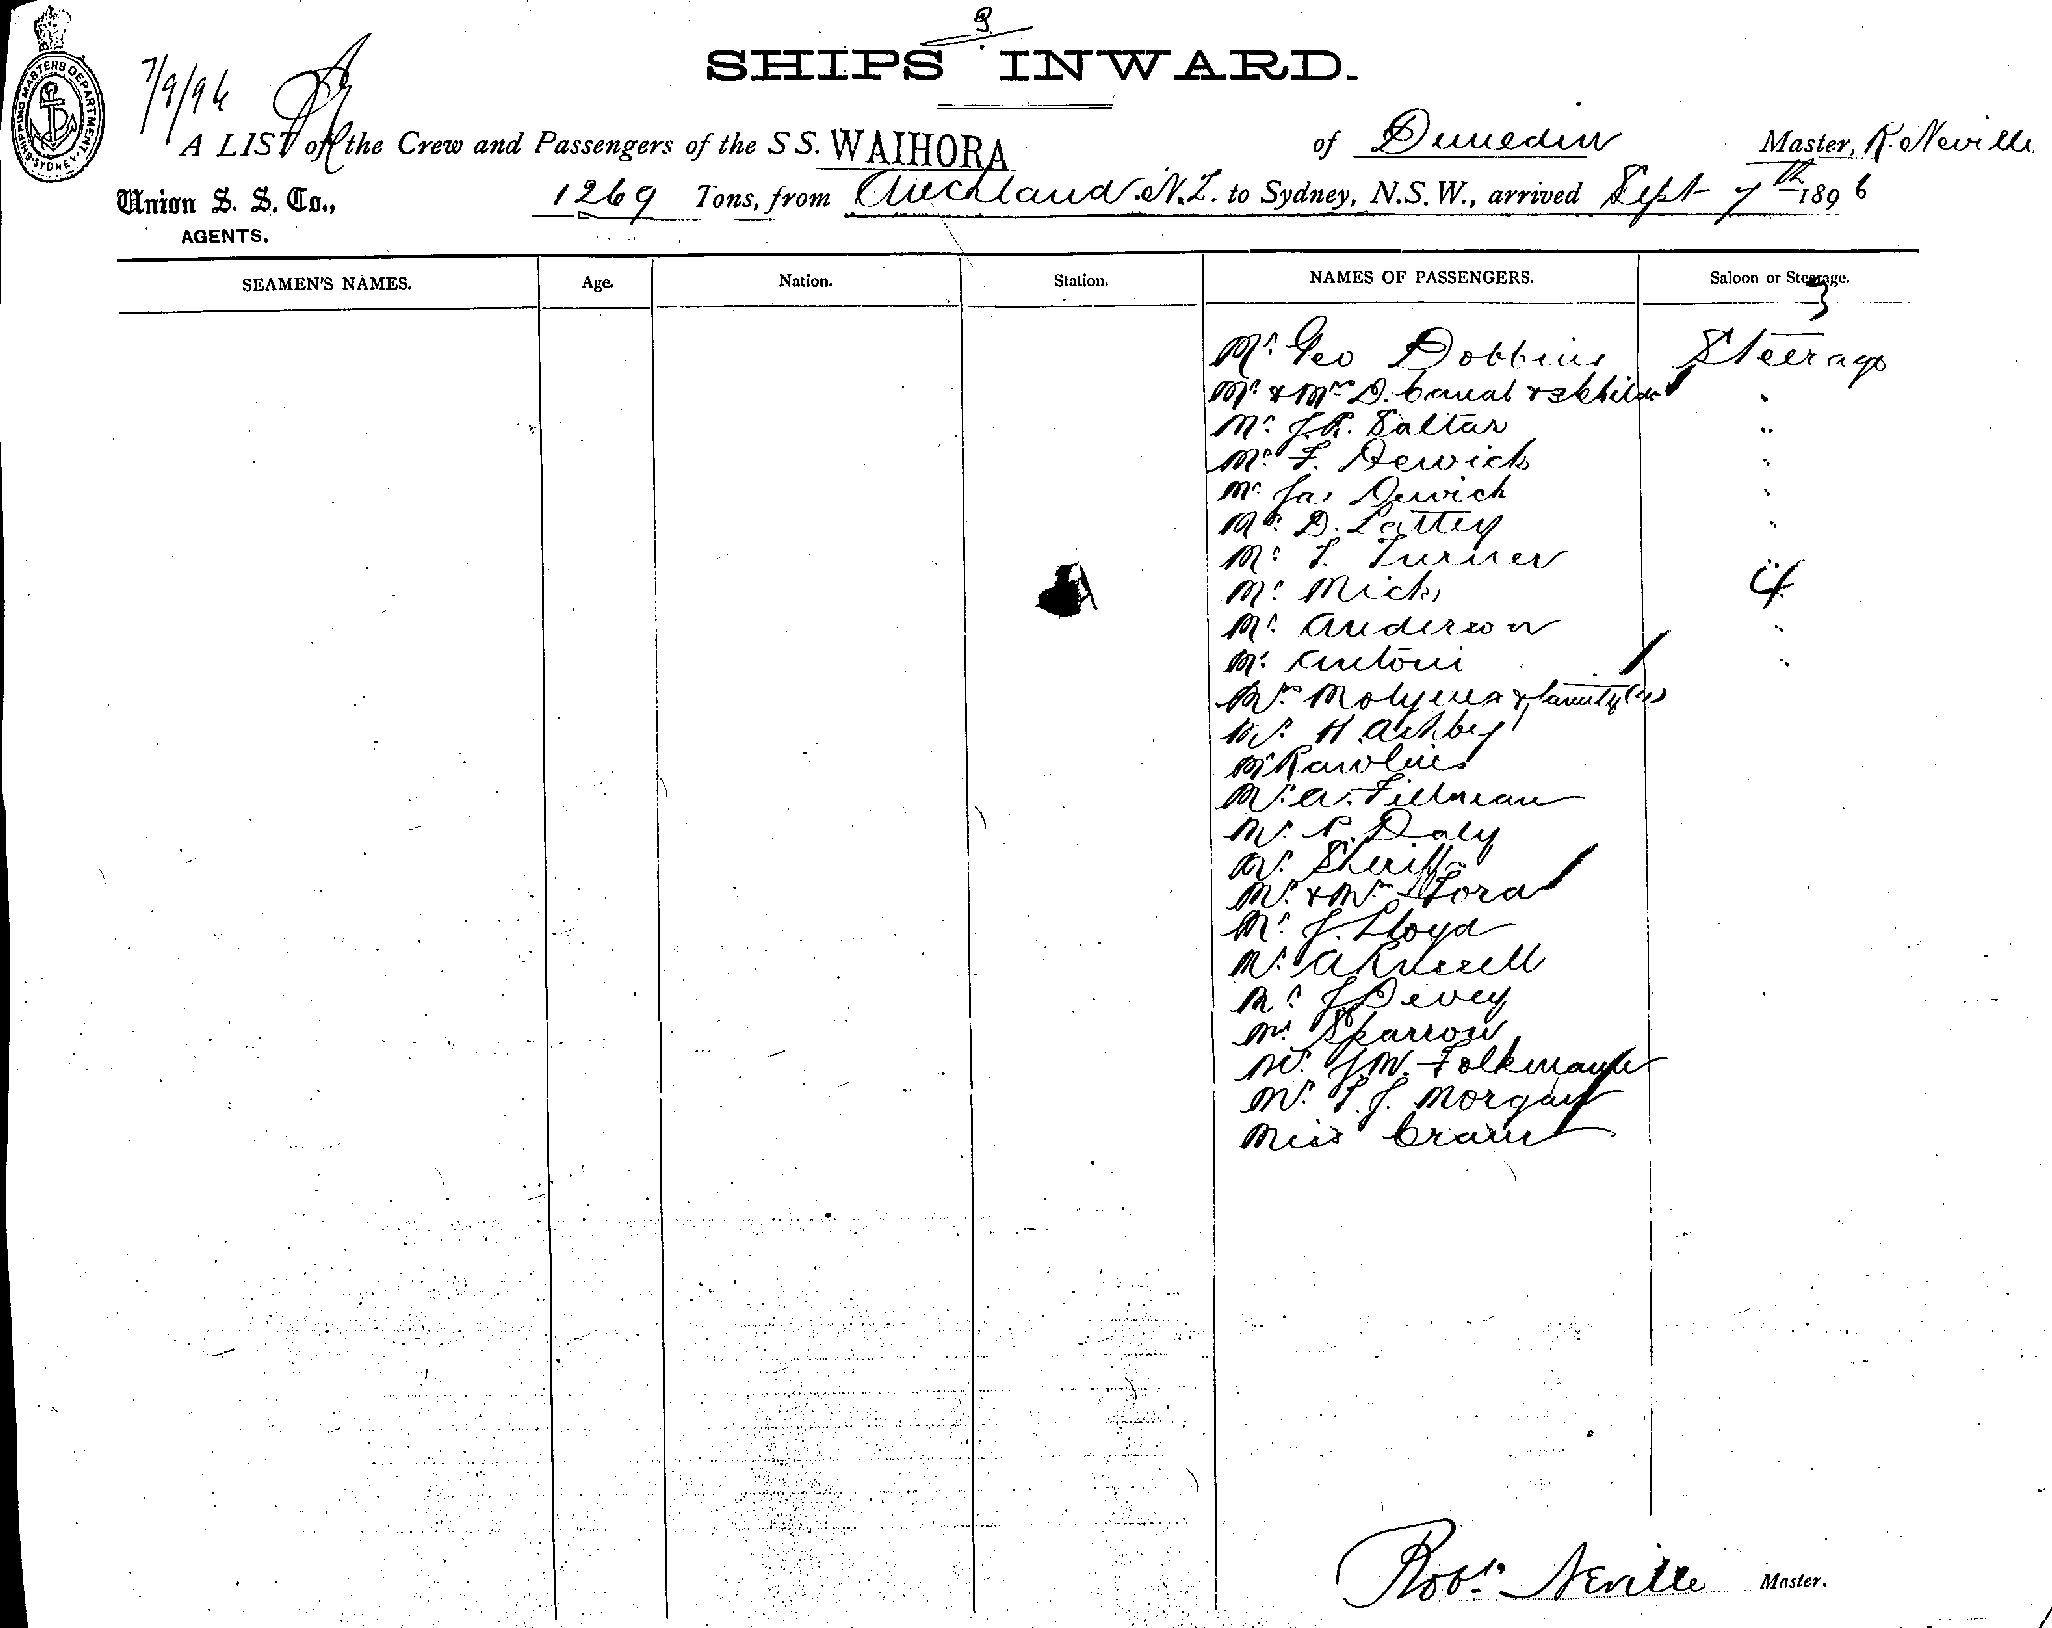 3
SHIPS INWARD.
7/9/96
SHIPPING MASTERS DEPARTMENT SYDNEY
A LIST of the Crew and Passengers of the SS. WAIHORA of Dunedin Master, R. Neville
Union S. S. Co., 1269 Tons, from Auckland N.Z. to Sydney, N.S.W., arrived Sept 7th 1896
AGENTS.
SEAMEN'S NAMES. Age. Nation. Station. NAMES OF PASSENGERS. Saloon or Steerage.
3
Mr Geo Dobbins Steerage
Mr & Mrs D. Canal & "
Mr J.R. Saltar "
Mr F. Dewick "
Mr Jas Dewick "
Mr D. Lattey "
Mr T. Turner "
Mr Micks 4
Mr Anderson "
Mr Antoni "
Mrs & family
Mr H Ashby
Mr Rawlins
Mr A. Fillman
Mr P. Daly
Mr Sheriff
Mr & Mrs Ford
Mr J. Lloyd
Mr A Russell
Mr J Devey
Mr Sparrow
Mr J.W. Folkmann
Mr T. J. Morgan
Miss
Robt. Neville Master.